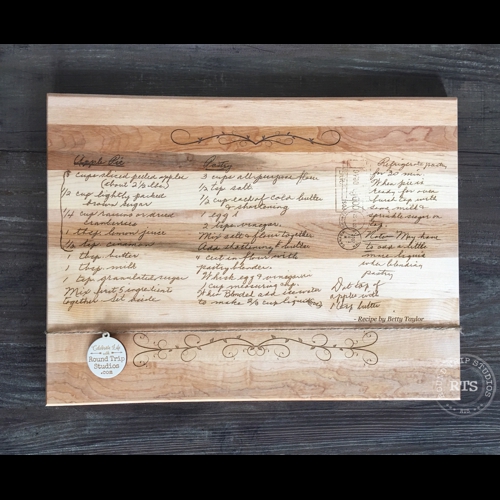 Apple Pie
8 cups sliced peeled apples
(about 2 ½ lbs)
½ cup lightly packed
brown sugar
¼ cup raisins or dried
cranberries
1 tbsp lemon juice
½ tsp cinnamon
1 tbsp butter
1 tbsp milk
1 tsp granulated sugar
Mix first 5 ingredients
together - set aside
Pastry
3 cups all purpose flour
½ tsp salt
½ cup each of cold butter
& shortening
1 egg
2 tsps vinegar
Mix salt & flour together
Add shortening & butter
& cut in flour with
pastry blender.
Whisk egg & vinegar in
1 cup measuring cup.
to make ⅔ cup liquid
Refrigerate pastry
for 30 min.
When pie is
ready for oven
brush top with
some milk &
sprinkle sugar on
top.
Note: May have
to use a little
more liquid
when blending
pastry
Dot top of
apples with
1 tbsp butter
- Recipe by Betty Taylor
Celebrate life
with
Round Trip
Studios
.com
ROUND TRIP STUDIOS
RTS